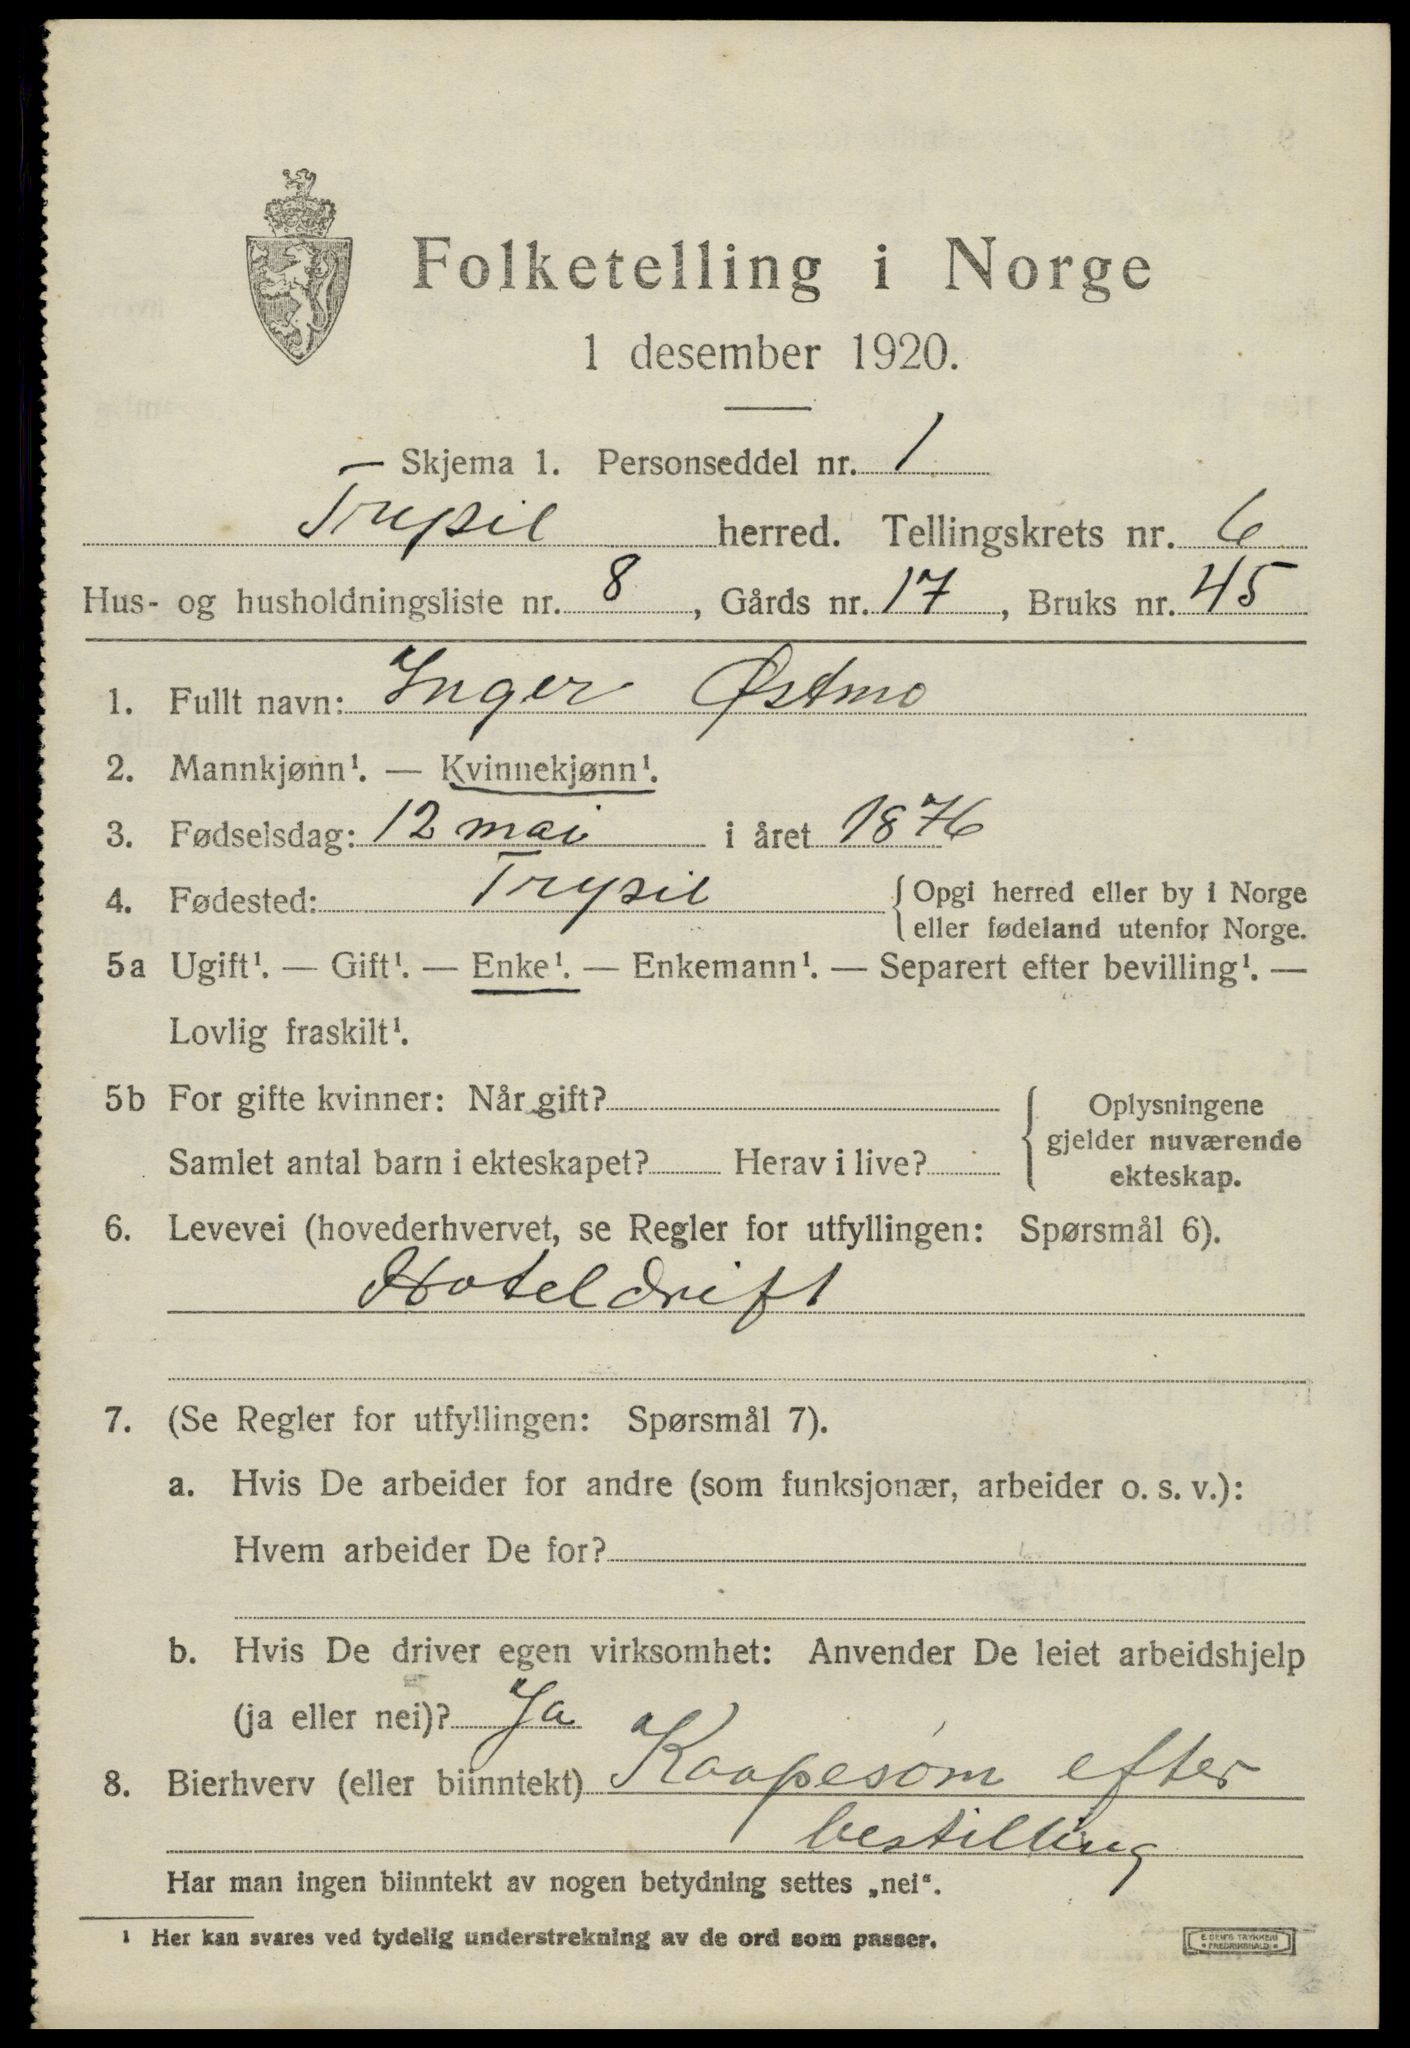 Folketelling i Norge
1 desember 1920.
Skjema 1. Personseddel nr. 1
Trysil herred. Tellingskrets nr. 6
Hus- og husholdningsliste nr. 8, Gårds nr. 17, Bruks nr. 45
1. Fullt navn: Inger Østmo
2. Mannkjønn¹. — Kvinnekjønn¹.
3. Fødselsdag: 12 mai i året 1876
4. Fødested: Trysil { Opgi herred eller by i Norge
eller fødeland utenfor Norge.
5a Ugift¹. — Gift¹. — Enke¹. — Enkemann¹. — Separert efter bevilling¹. —
Lovlig fraskilt¹.
5b For gifte kvinner: Når gift?
Samlet antal barn i ekteskapet? Herav i live?
{ Oplysningene
gjelder nuværende
ekteskap.
6. Levevei (hovederhvervet, se Regler for utfyllingen: Spørsmål 6).
Hoteldrift
7. (Se Regler for utfyllingen: Spørsmål 7).
a. Hvis De arbeider for andre (som funksjonær, arbeider o. s. v.):
Hvem arbeider De for?
b. Hvis De driver egen virksomhet: Anvender De leiet arbeidshjelp
(ja eller nei)? Ja
8. Bierhverv (eller biinntekt) Kaapesøm efter
bestilling
Har man ingen biinntekt av nogen betydning settes „nei“.
¹ Her kan svares ved tydelig understrekning av de ord som passer.
E DEM'S TRYKKERI
FREDRIKSHALD